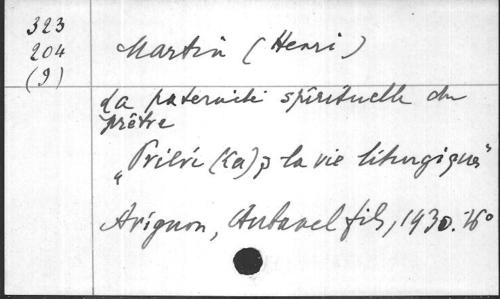 323
204
(9)
Martin (Henri)
La paternité spirituelle du
prêtre
„Prière (La) & la vie liturgique"
Avignon, Aubanel fils, 1930. 16°